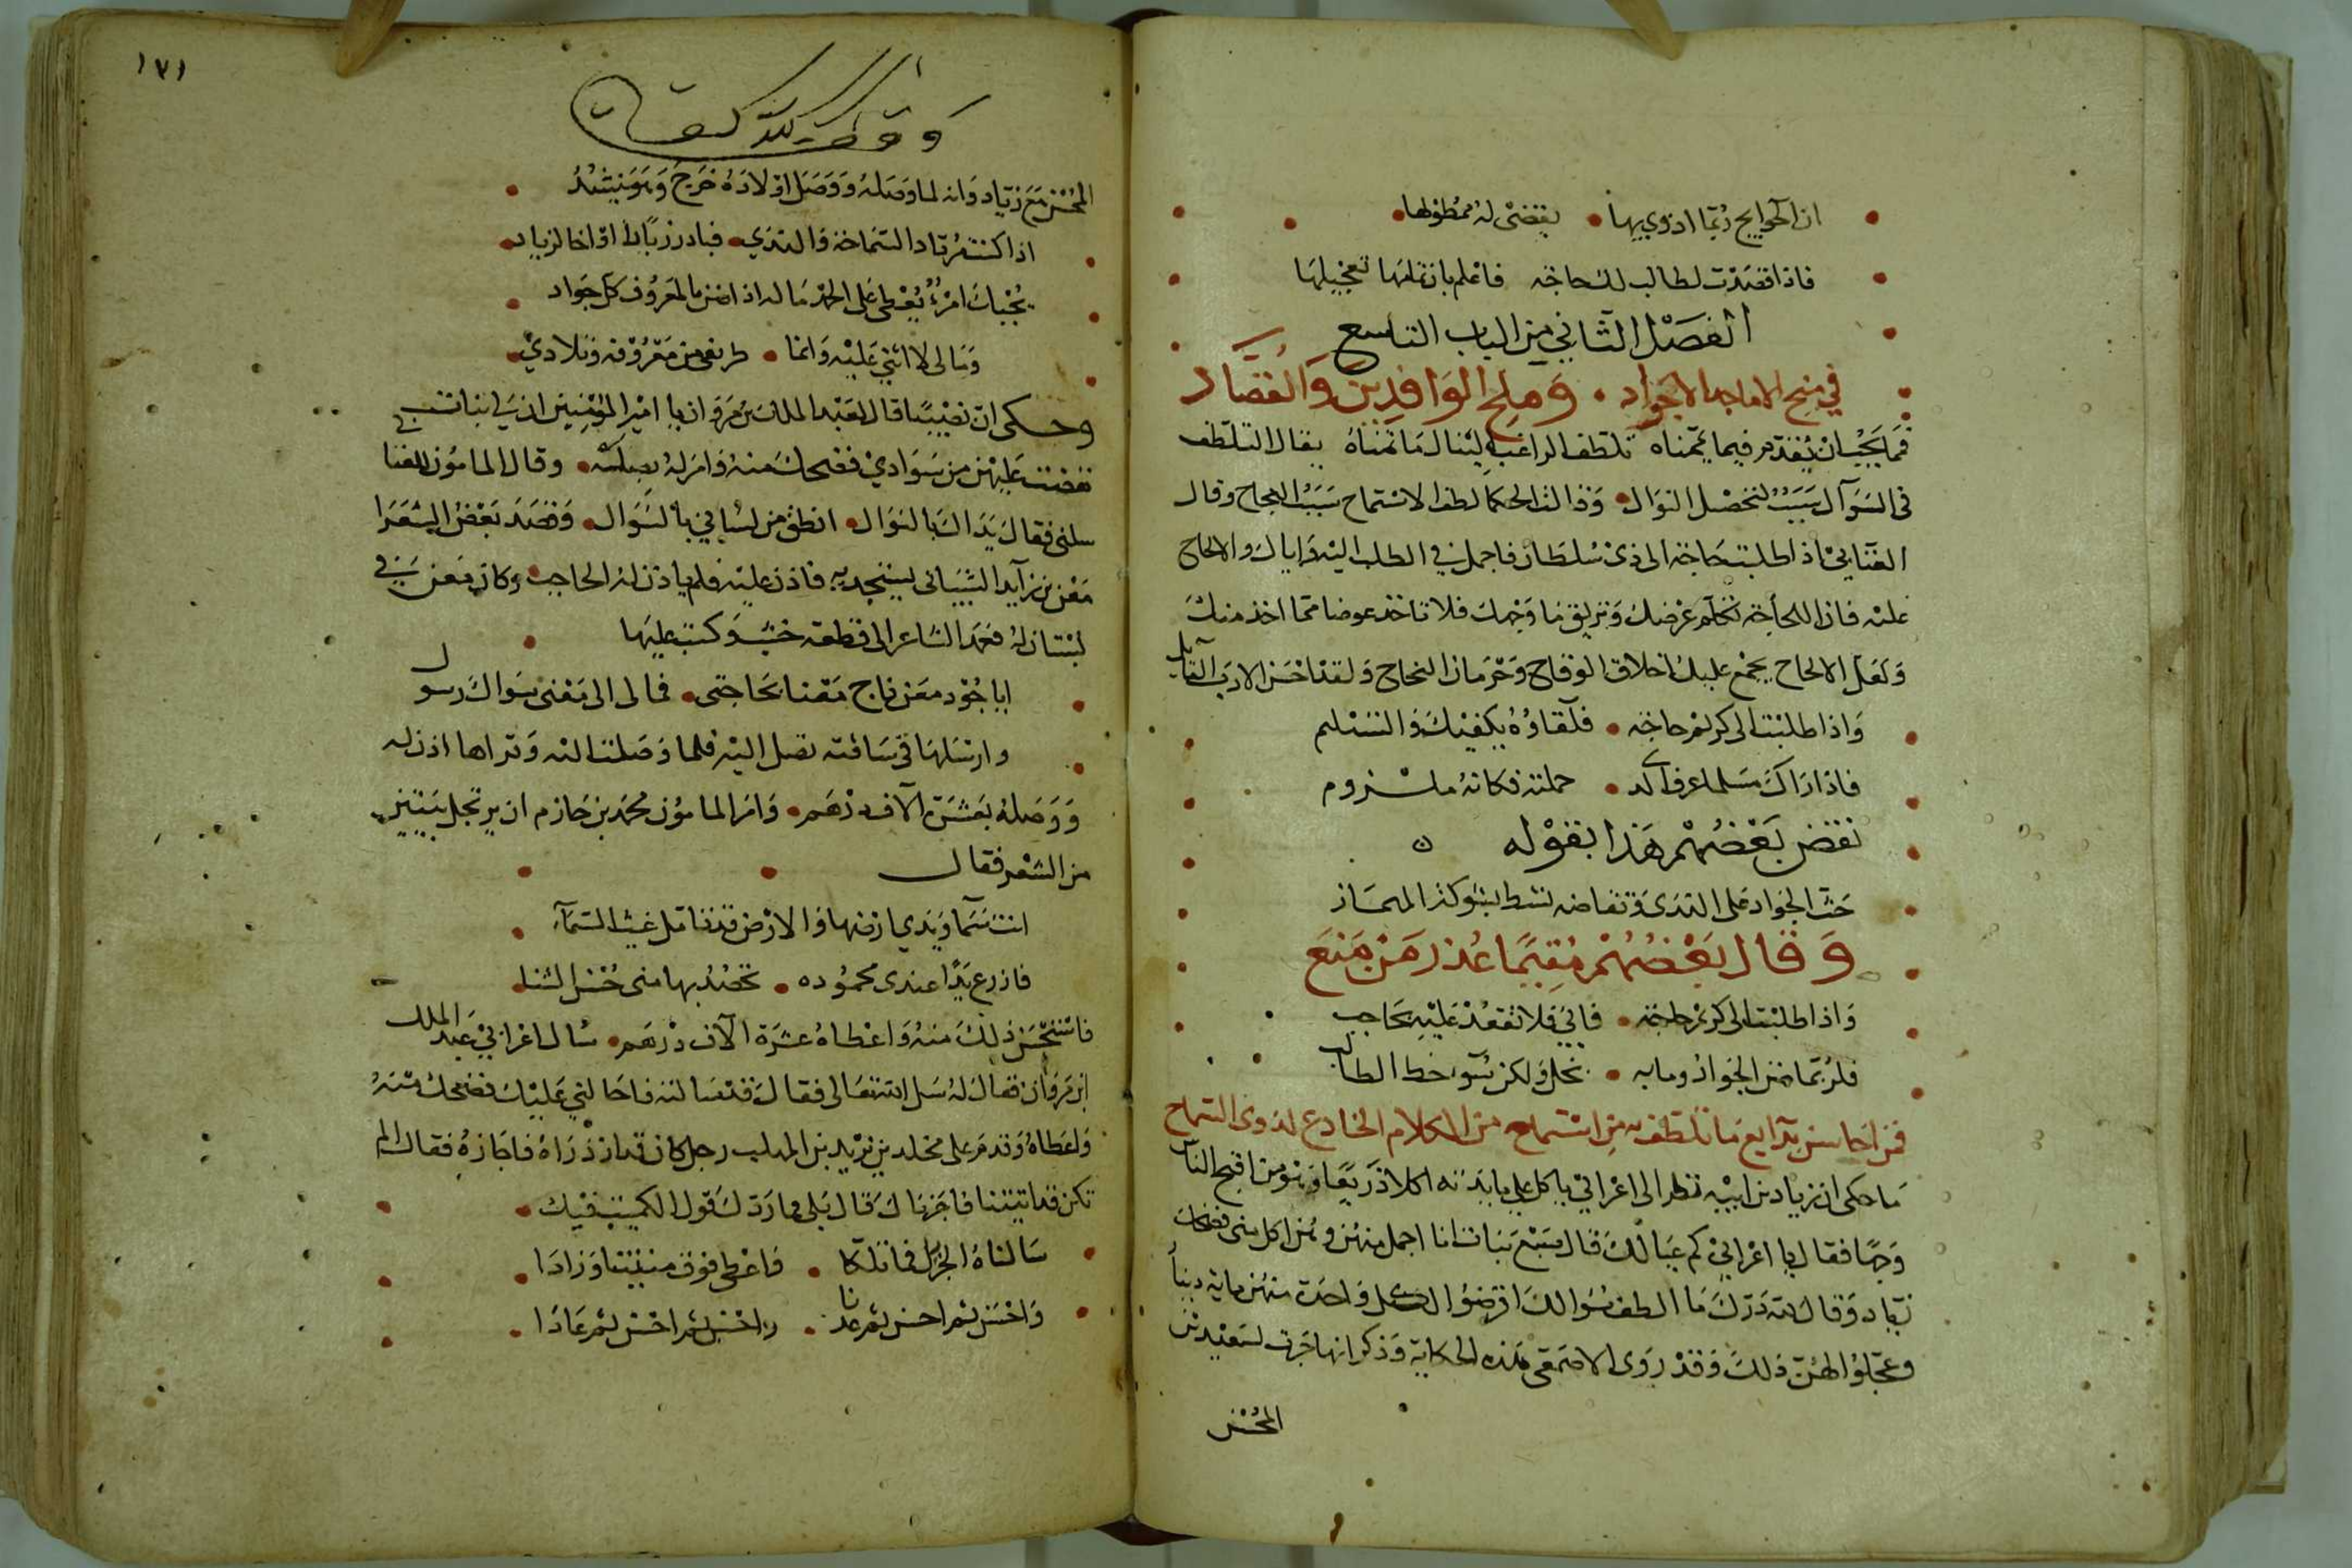 ان الحوايج ربما ازرى بها • يقضى له ممطولها
فاذا قصدت لطالب لك حاجة فاعلم بان تمامها تعجيلها
الفصل الثاني من الباب التاسع
في منح الاماجد الاجواد • وملح الوافدين والقصاد
فما يجب ان يقدم فيما يتمناه تلطف الراغب لينال ما تمناه يقال التلطف
في السوآل سبب لتحصل النوال • وقالت الحكما لطف الاستماح سبب النجاح وقال
العتابي اذا طلبت حاجة الى ذي سلطان فاجمل في الطلب اليه واياك والالحاح
عليه فان اللجاجة تكلم عرضك وتريق ما وجهك فلا تاخذ عوضا مما اخذ منك
ولعل الالحاح يجمع عليك اخلاق الوقاح وحرمان النجاح ولقد احسن الادب القائل
واذا طلبت الى كريم حاجة • فلقاوه يكفيك والتسليم
فاذا راك مسلما عرف الذي • حملته فكانه ملزوم
نقض بعضهم هذا بقوله
حث الجواد على الندى وتقاضه
وقال بعضهم مقيما عذر من منع
واذا طلبت الى كريم حاجة • فابى فلا تقعد عليه بحاجب
فلربما منع الجواد وما به • بخل ولكن سو حظ الطالب
فمن احاسن بدايع ما تلطف به من استماح من الكلام الخادع لذوى السماح
ما حكى ان زياد بن ابيه نظر الى اعرابي ياكل على مايدته اكلا ذريعا وهو من اقبح الناس
وجها فقال يا اعرابي كم عيالك قال سبع بنات انا اجمل منهن وهن اكل مني فضحك
زياد وقال لله درك ما الطف سوالك افرضوا لكل واحدة منهن ماية دينار
وعجلوا لهن ذلك وقد روى الاصمعى هذه الحكاية وذكر انها جرت لسعيد بن
المحسن
١٧١
المحسن مع زياد وانه لما وصله ووصل اولاده خرج وهو ينشد
اذا كنت مرتاد السماحة والندي • فبادر زيادا او اخا لزياد
يجبك امرؤ يعطي على الحمد ماله اذا ضن بالمعروف كل جواد
ومالى لا اثني عليه وانما • طريفى من معروفه وتلادي
وحكى ان نصيبا قال لعبد الملك بن مروان يا امير المؤمنين ان لي بنات
نفضت عليهن من سوادي فضحك منه وامر له بصلة • وقال المامون للعتابي
سلني فقال يداك بالنوال • انطق من لساني بالسوال • وقصد بعض الشعرا
معن بن زايد الشيباني يستجديه فاذن عليه فلم ياذن له الحاجب • وكان معن في
بستان له فعمد الشاعر الى قطعة خشب وكتب عليها
ايا جود معن ناج معنا بحاجتى • فمالى الى معن سواك رسول
وارسلها في ساقية تصل اليه فلما وصلت اليه وقراها اذن له
ووصله بعشرة الاف درهم • وامر المامون محمد بن حازم ان يرتجل بيتين
من الشعر فقال
انت سما ويدي ارضها والارض قد تامل غيث السمآ
فازرع يدا عندى محموده • تحصد بها منى حسن الثنا
فاستحسن ذلك منه واعطاه عشرة الاف درهم • سال اعرابي عبد الملك
ابن مروان فقال له سل الله تعالى فقال قد سالته فاحالني عليك فضحك منه
واعطاه وقدم على مخلد بن يزيد بن المهلب رجل كان قد زاره فاجازه فقال الم
تكن قد اتيتنا فاجزناك قال بلى فما ردك قال قول الكميت فيك
سالناه الجزيل فما تلكا • فاعطى فوق منيتنا وزادا
واحسن ثم احسن ثم عدنا • فاحسن ثم احسن ثم عادا